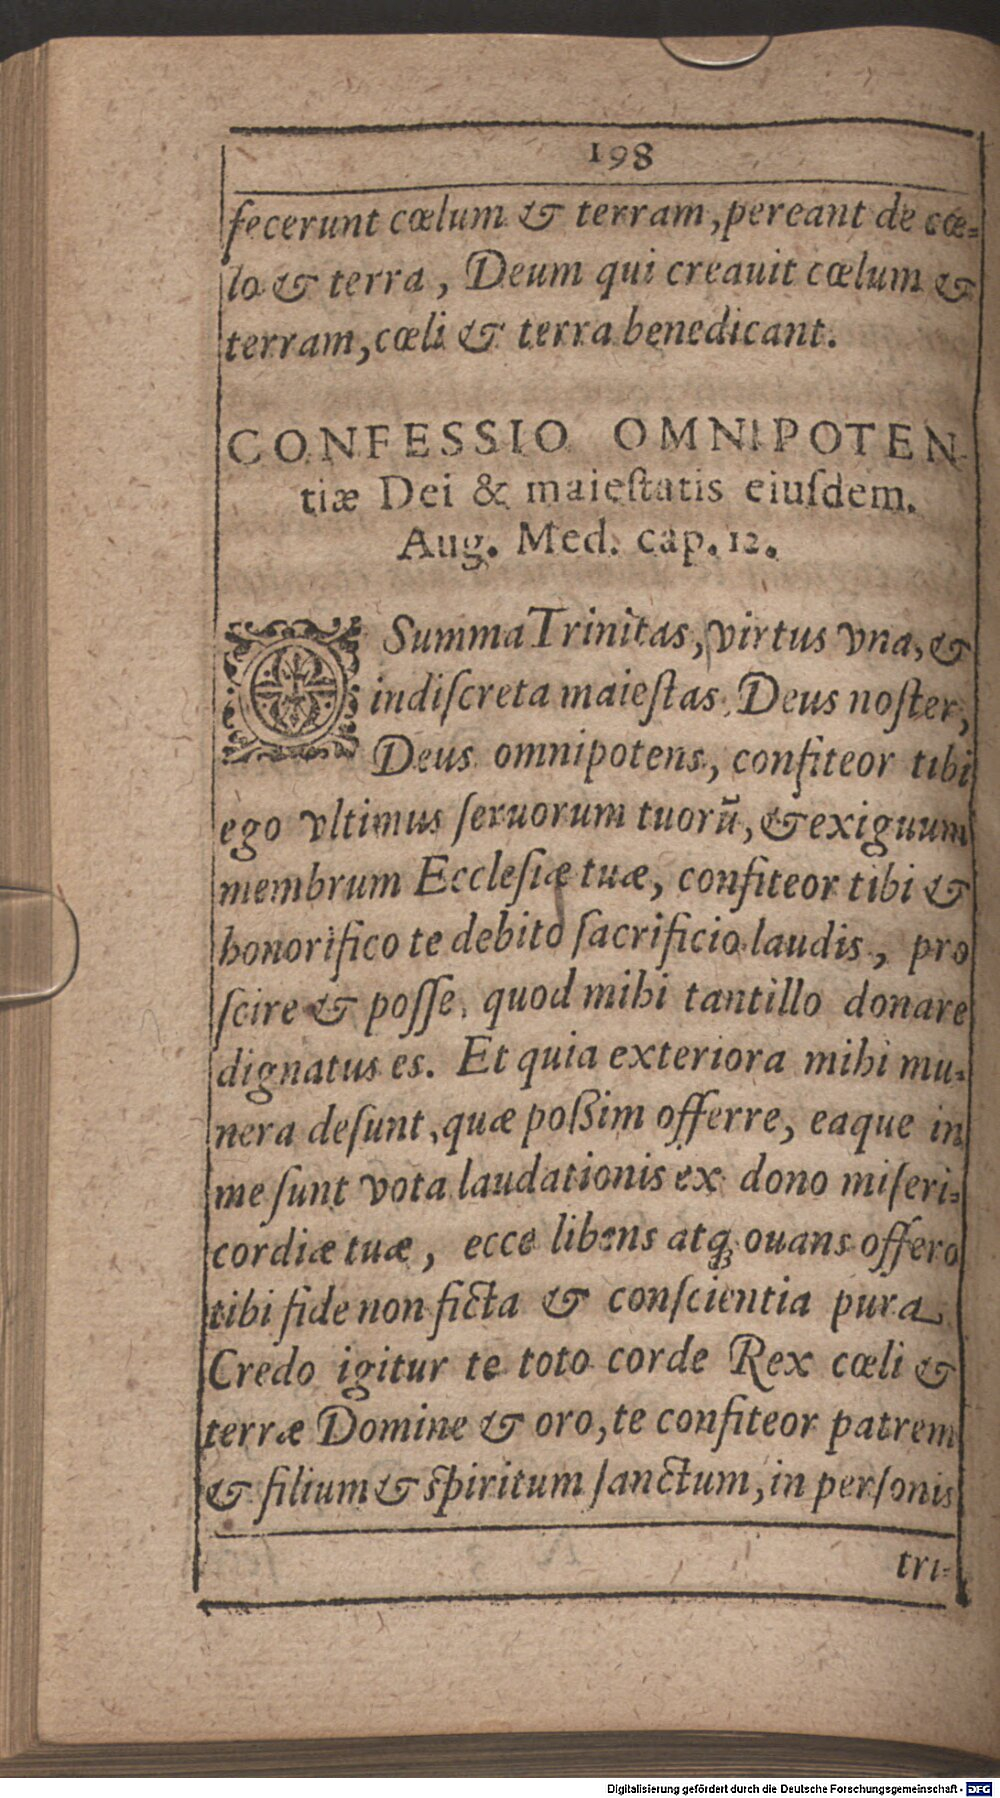 198
fecerunt cœlum & terram, pereant de cœ-
lo & terra, Deum qui creauit cœlum &
terram, cœli & terra benedicant.
CONFESSIO OMNIPOTEN-
tiæ Dei & maieſtatis eiuſdem.
Aug. Med. cap. 12.
O Summa Trinitas, virtus vna, &
indiſcreta maieſtas Deus noſter,
Deus omnipotens, confiteor tibi
ego vltimus ſeruorum tuorū, & exiguum
membrum Eccleſiæ tuæ, confiteor tibi &
honorifico te debito ſacrificio laudis, pro
ſcire & poſſe, quod mihi tantillo donare
dignatus es. Et quia exteriora mihi mu-
nera deſunt, quæ poßim offerre, eaque in
me ſunt vota laudationis ex dono miſeri-
cordiæ tuæ, ecce libens atq; ouans offero
tibi fide non ficta & conſcientia pura.
Credo igitur te toto corde Rex cœli &
terræ Domine & oro, te confiteor patrem
& filium & ſpiritum ſanctum, in perſonis
tri-
Digitalisierung gefördert durch die Deutsche Forschungsgemeinschaft - DFG